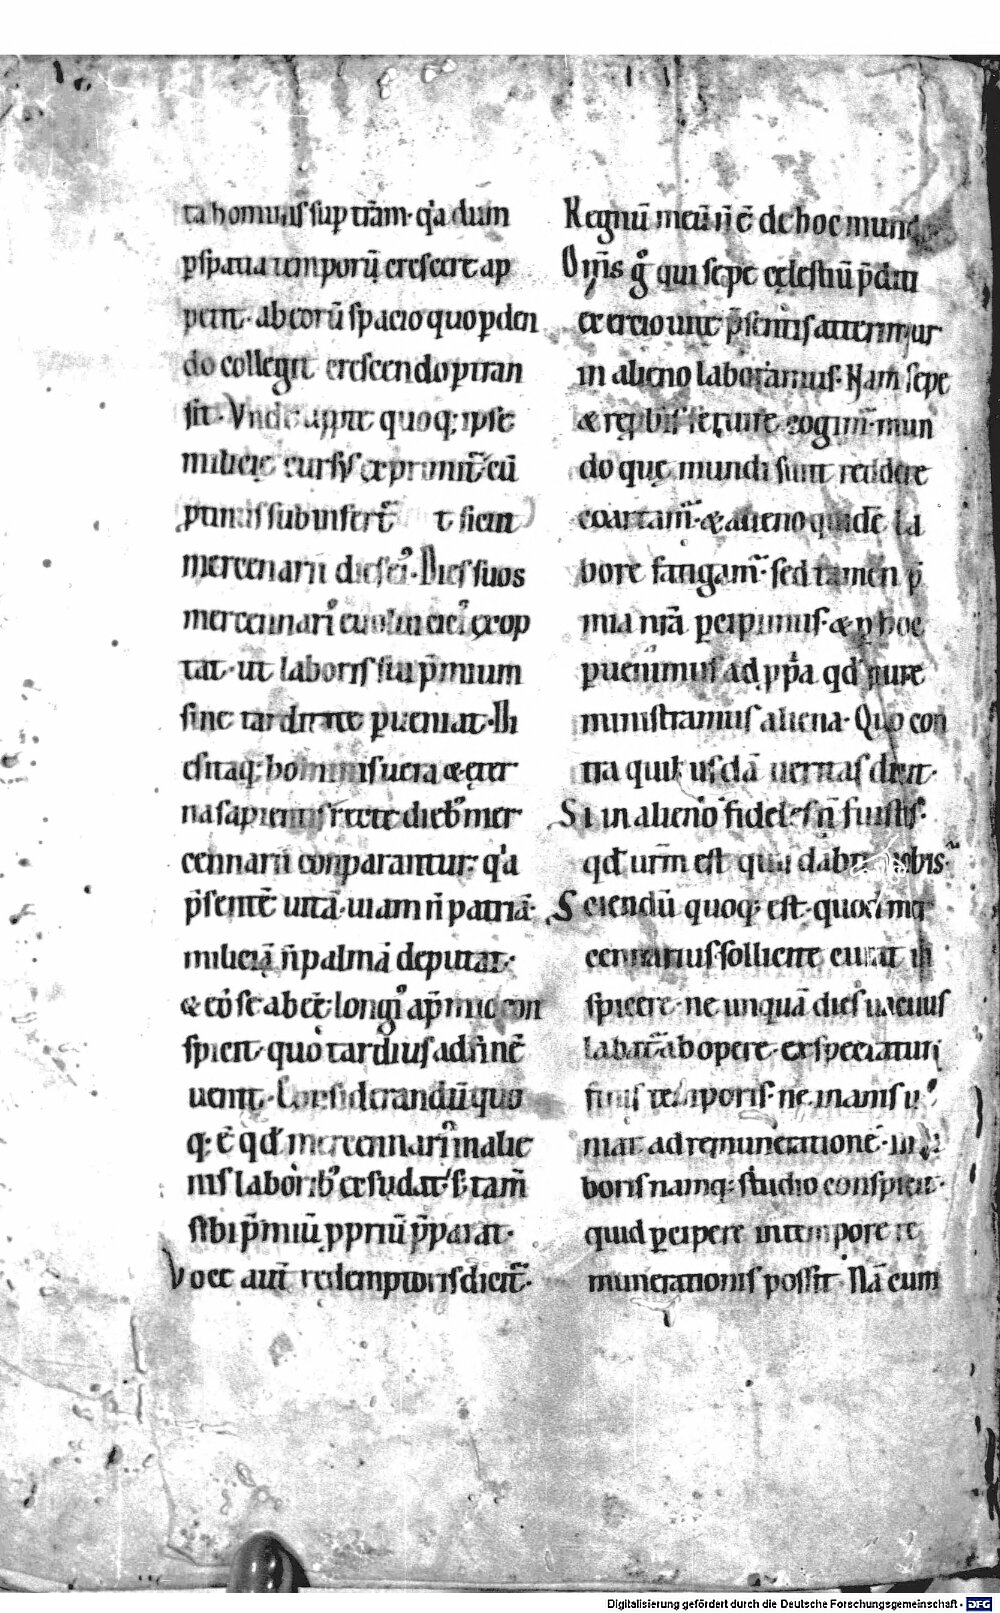 ta hominis sup t̄ram · q'a dum
p spatia temporū crescere ap
petit · ab eorū spacio quo pden
do collegit crescendo ptran
sit · Vnde apte quoq; ipse
milicię cursꝰ exprimit᷑ cū
ptinus subinfert᷑ t sicut
mercenarii dies eiꝰ · Dies suos
mercennariꝰ euolui citiꝰ exop
tat · ut laboris sui p̄mium
sine tarditate pueniat · Di
es itaq; hominis uera & eter
na sapientis recte diebꝰ mer
cennarii conparantur: q'a
p̄sentē uitā · uiam n̄ patriā ·
miliciā n̄ palmā deputat ·
& eo se ab eē longiꝰ ap̄mio con
spicit · quo tardius ad finē
uenit · Considerandū quo
q; ē qd̄ mercennariꝰ in alie
nis laboribꝰ exsudat · s; tam̄
sibi p̄miū ppriū p̄parat ·
Voce aut̄ redemptoris dicit᷑ ·
Regnū meū n̄ ē de hoc mund
Om̄s g° qui spe cęlestiū p̄diti
exercio uite p̄sentis atterimur
in alieno laboramus · Nam sepe
& reprobis seruire cogim̄ · mun
do quę mundi sunt reddere
coartam̄ · & alieno quidē la
bore fatigam̄ · sed tamen p̄
mia nr̄a pcipimus · & p hoc
puenimus ad ppa qd̄ pure
ministramus aliena · Quo con
tra quibusdā ueritas dicit ·
Si in alieno fideles n̄ fuistis ·
qd̄ ur̄m est quis dabit uobis ·
Sciendū quoq; est · quod mer
cennarius sollicite curat in
spicere · ne unquā dies uacuus
labat᷑ ab opere · & expectatus
finis temporis · ne inanis ue
niat ad remunerationē · In la
boris namq; studio conspicit ·
quid pcipere in tempore re
munerationis possit · Nā cum
Digitalisierung gefördert durch die Deutsche Forschungsgemeinschaft - DFG